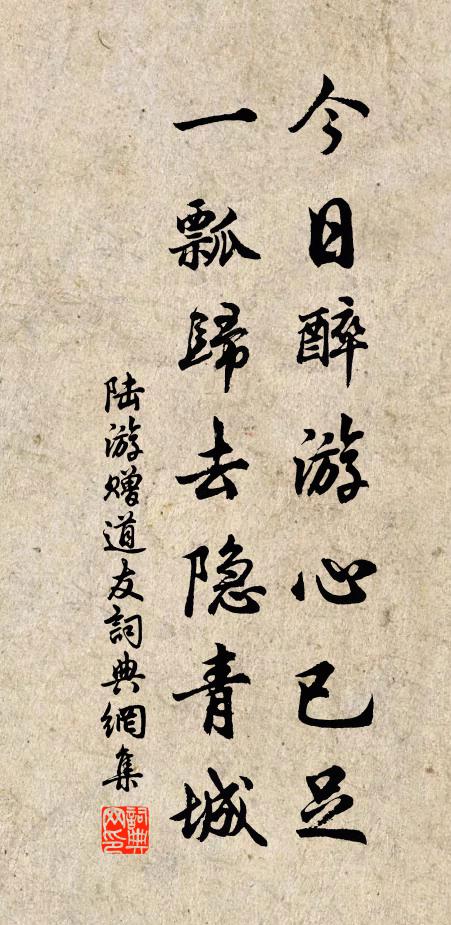 今日醉游心已足
一瓢歸去隐青城
陆游赠道友詞典網集
詞典网印